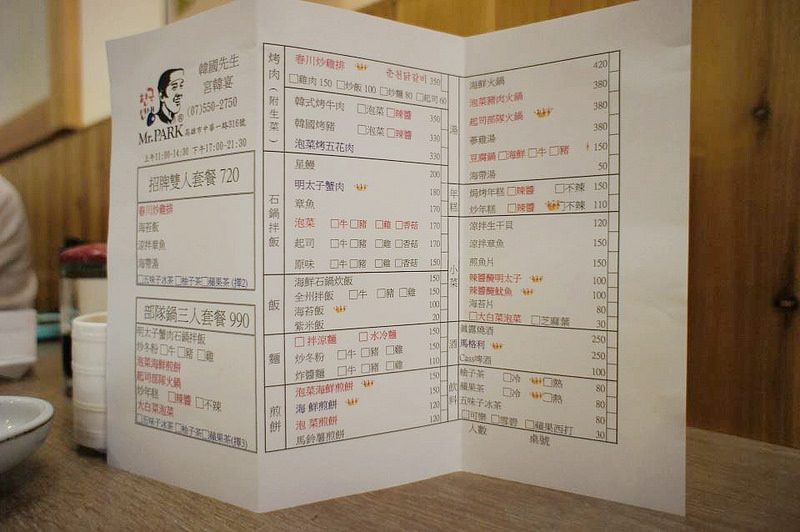 韓國先生
宮韓宴
(07)550-2750
Mr.PARK
高雄市中華一路316號
上午11:00-14:30 下午17:00-21:30
招牌雙人套餐 720
春川炒雞排
海苔飯
涼拌章魚
海帶湯
□五味子冰茶□柚子茶□蘋果茶(擇2)
部隊鍋三人套餐 990
明太子蟹肉石鍋拌飯
炒冬粉 □牛□豬 □雞
泡菜海鮮煎餅
起司部隊火鍋
炒年糕 □辣醬 □不辣
大白菜泡菜
□五味子冰茶□柚子茶□蘋果茶(擇3)
烤肉(附生菜)
春川炒雞排 춘천닭갈비 350
□雞肉 150 □炒飯 100 □炒麵 80 □起司 60
韓式烤牛肉 □泡菜□辣醬 350
韓國烤豬 □泡菜□辣醬 330
泡菜烤五花肉 330
石鍋拌飯
星鰻 200
明太子蟹肉 180
章魚 170
泡菜 □牛□豬 □雞 □香菇 170
起司 □牛□豬 □雞 □香菇 170
原味 □牛□豬 □雞 □香菇 150
飯
海鮮石鍋炊飯 150
全州拌飯 □牛 □豬 □雞 150
海苔飯 100
紫米飯 20
麵
□拌涼麵 □水冷麵 150
炒冬粉 □牛 □豬 □雞 150
炸醬麵 □牛 □豬 □雞 110
煎餅
泡菜海鮮煎餅 150
海鮮煎餅 150
泡菜煎餅 120
馬鈴薯煎餅 120
湯
海鮮火鍋 420
泡菜豬肉火鍋 380
起司部隊火鍋 380
蔘雞湯 380
豆腐鍋□海鮮□牛□豬 150
海帶湯 50
年糕
焗烤年糕 □辣醬 □不辣 150
炒年糕 □辣醬 □不辣 110
小菜
涼拌生干貝 120
涼拌章魚 150
煎魚片 150
辣醬醃明太子 100
辣醬醃魷魚 100
海苔片 80
□大白菜泡菜 □芝麻葉 30
酒
眞露燒酒 250
馬格利 250
Cass啤酒 100
飲料
柚子茶 □冷 □熱 80
蘋果茶 □冷 □熱 80
五味子冰茶 80
□可樂 □雪碧 □蘋果西打 30
人數 桌號